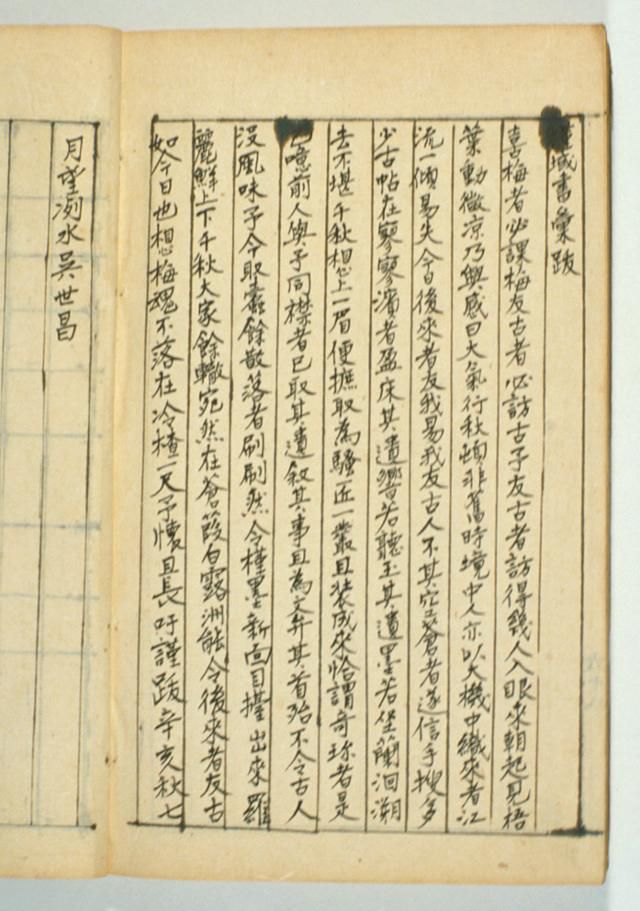 域書彙跋
喜梅者必課梅友古者必訪古予友古者訪得幾人入眼來朝起見梧
葉動微凉乃興感曰大氣行秋頓非舊時境中人亦以大機中織來者江
流一傾易失今日後來者友我易我友古人不其空蒼者遂信手搜多
少古帖在寥寥濱者盈床其遺響若聽玉其遺墨若坐蘭洄溯
去不堪千秋想上一眉便摭取為騷匠一叢且裝成來恰謂奇珎者是
噫前人與予同襟者已取其遺叙其事且為文弁其首殆不令古人
沒風味予今取蠹餘散落者刷刷然令槿墨新面目擡出來羅
麗鮮上下千秋大家餘轍宛然在蒼葭白露洲能令後來者友古
如今日也想梅魂不落在冷楂一尺予懷且長吁謹跋辛亥秋七
月望洌水吳世昌